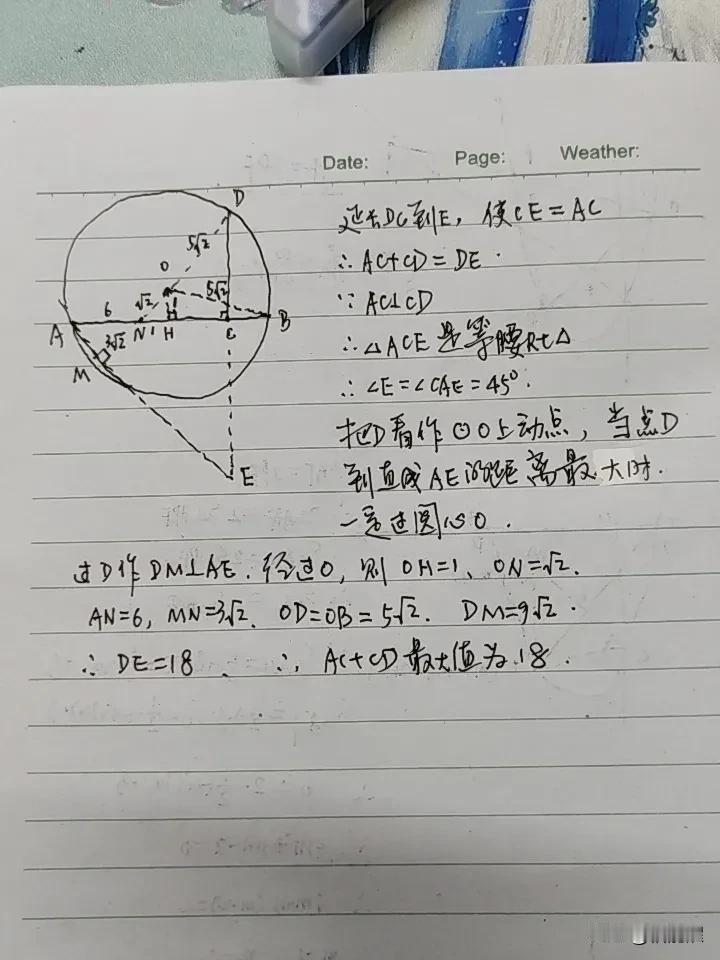 Date: Page: Weather:
延长DC到E,使CE=AC
∴AC+CD=DE.
∵AC⊥CD
∴△ACE是等腰Rt△
∴∠E=∠CAE=45°.
把D看作⊙O上动点,当点D
到直线AE的距离最大时.
一定过圆心O.
过D作DM⊥AE.经过O,则OH=1、ON=√2.
AN=6,MN=3√2.OD=OB=5√2.DM=9√2.
∴DE=18.∴AC+CD最大值为18.
D
5√2
O
√2
1
5√2
6
A
N
1
H
C
B
3√2
M
E